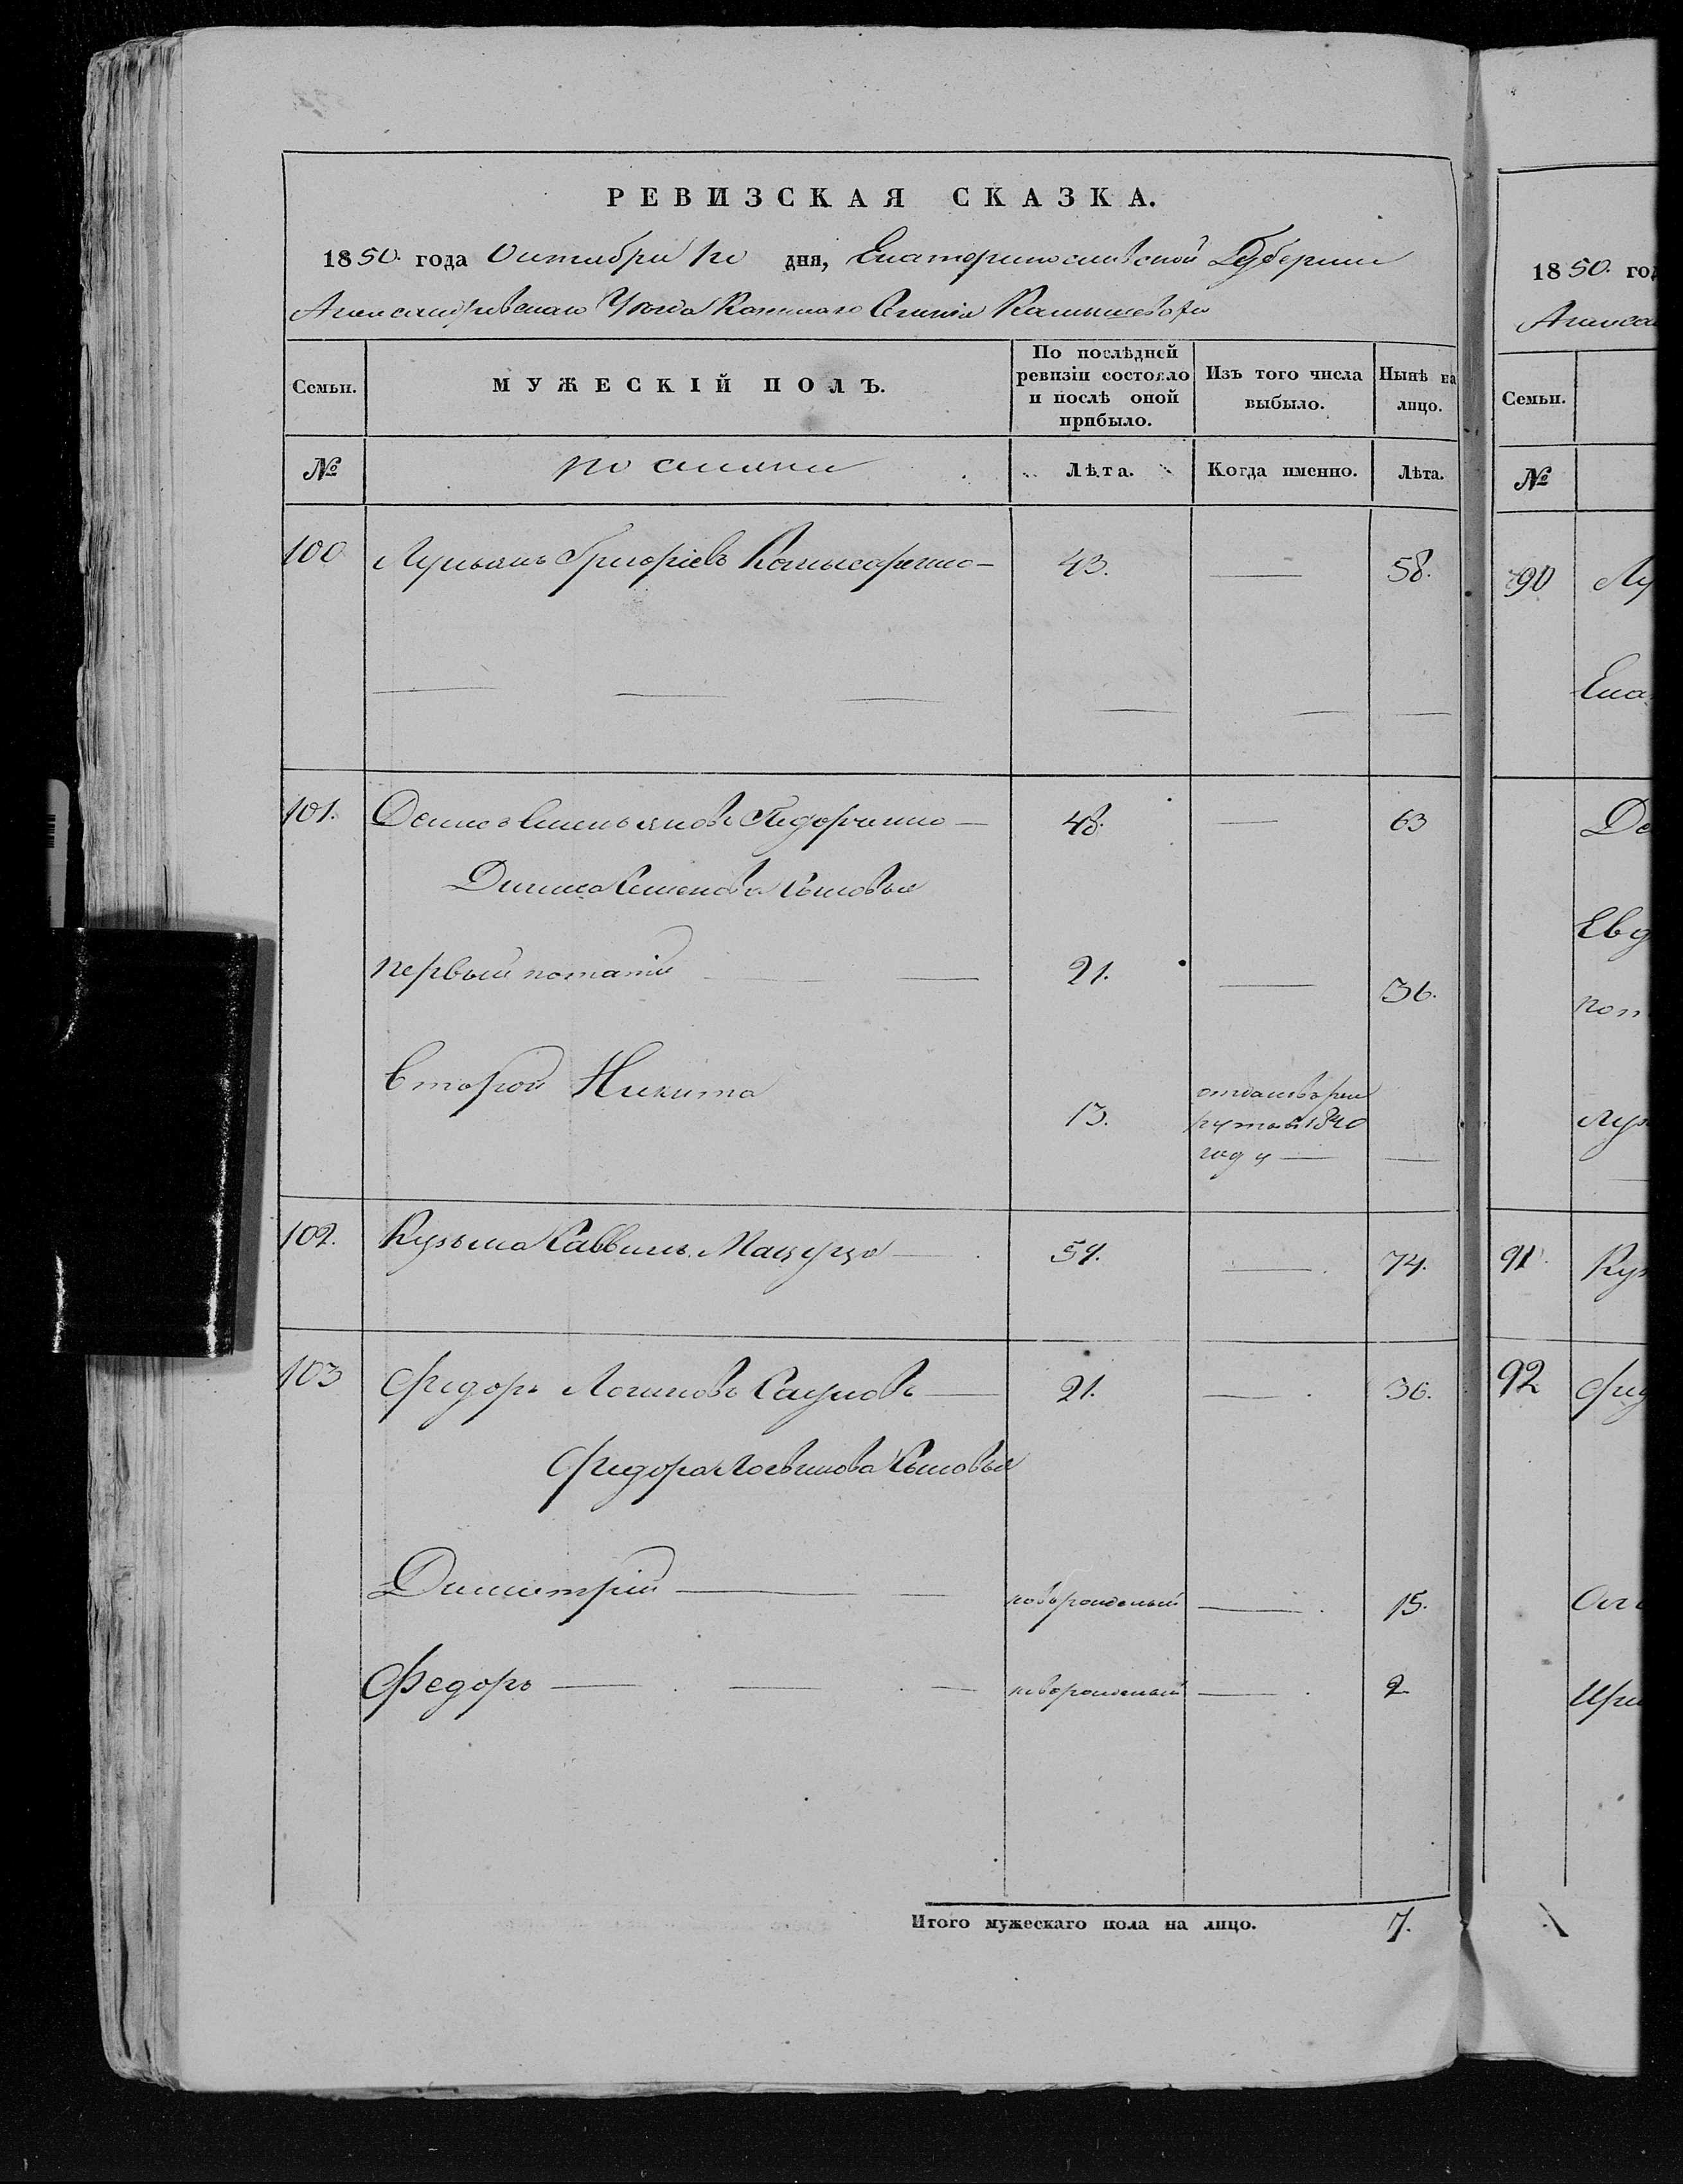 РЕВИЗСКАЯ СКАЗКА.
1850. года Октября 1го дня, Екатеринославской Губернии
Александровскаго Уезда Казеннаго Селения Камышевахи
Семьи.
МУЖЕСКІЙ ПОЛЪ.
По послѣдней ревизіи состояло и послѣ оной прибыло.
Изъ того числа выбыло.
Нынѣ на лицо.
№
Лѣта.
Когда именно.
Лѣта.
100 Лукьянъ Григоріевъ Комысаренко — 43. — 58.
101. Денисъ Емельяновъ Федорченко — 48. — 63
Дениса Сыновья
первый Потапій — 21. — 36.
Второй Никита 13.
отданъ в рек
руты в 1840
году — —
102. Кузьма Саввинъ Мацуца — 59. — 74.
103 Федоръ Логиновъ Сауловъ — 21. — 36.
Федора Логвинова Сыновья
Димитрій — новорожденый — 15.
Федоръ — новорожденый — 2
Итого мужескаго пола на лицо. 7.
1850. год
Алекса
Семьи.
№
90 Лу
Ека
Де
Евд
пот
Лук
91. Куз
92 Фед
Ири